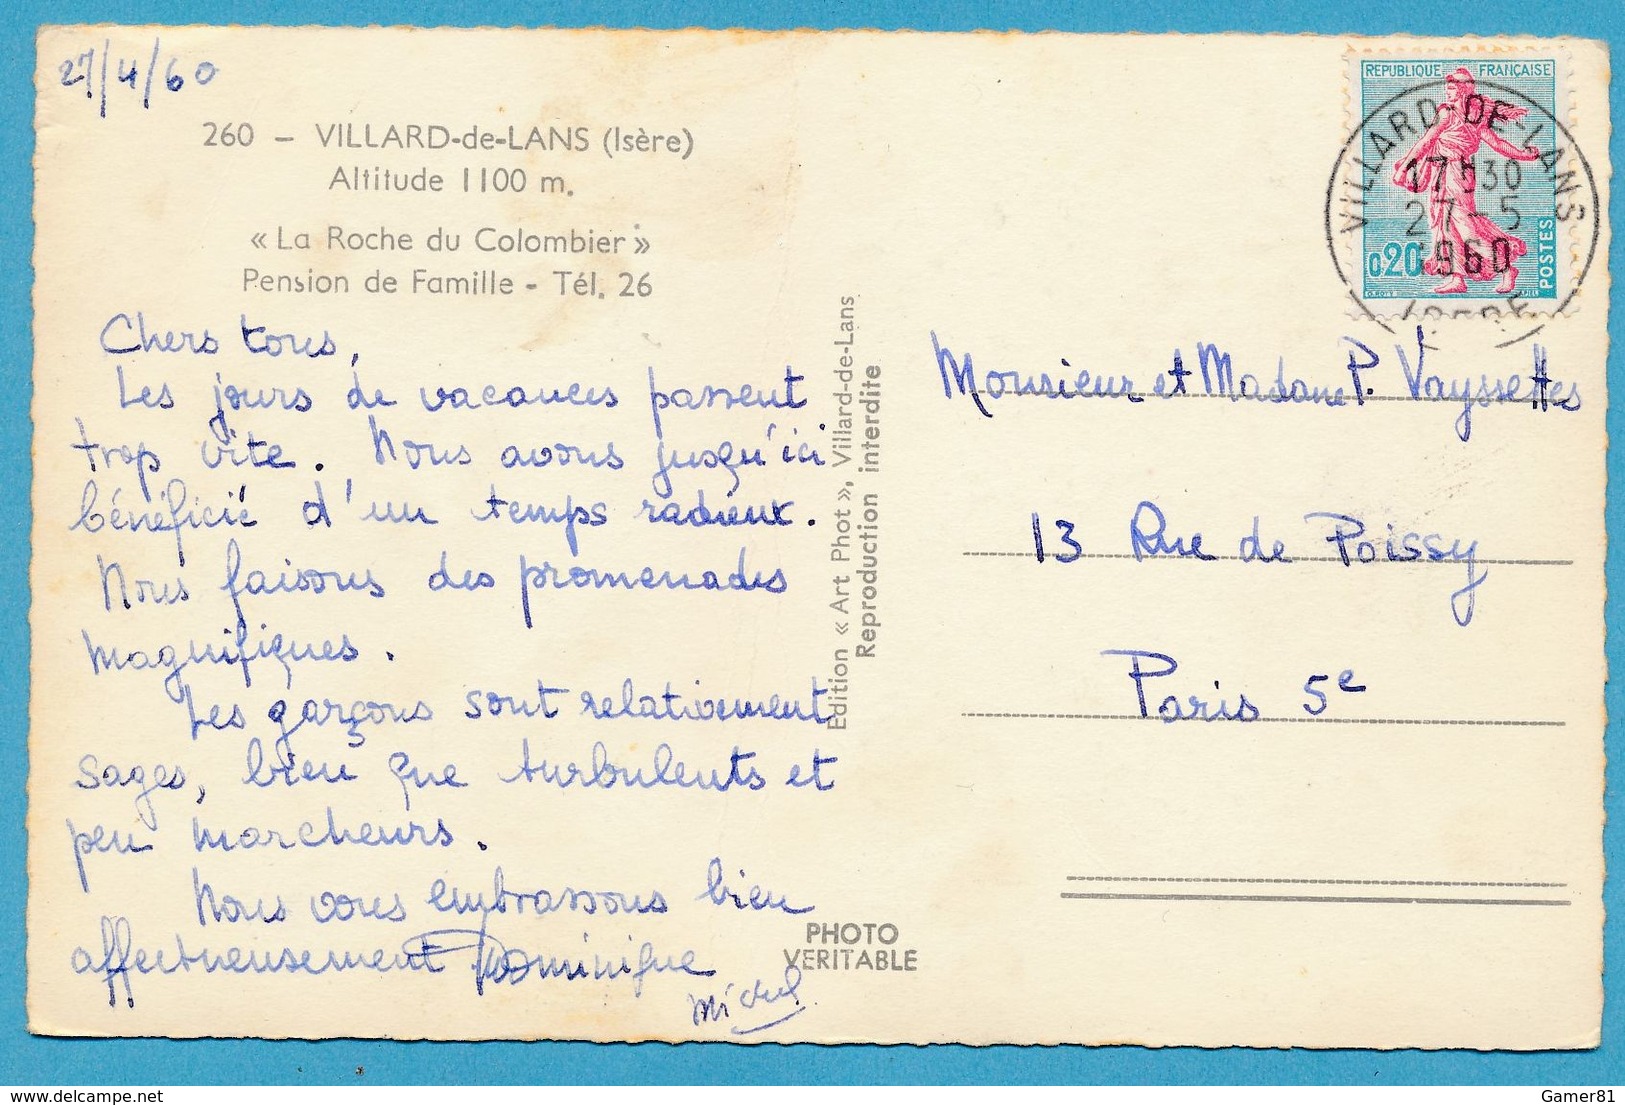 27/4/60
260 – VILLARD-de-LANS (Isère)
Altitude 1100 m.
« La Roche du Colombier »
Pension de Famille - Tél. 26
Chers tous,
Les jours de vacances passent
trop vite. Nous avons jusqu'ici
bénéficié d'un temps radieux.
Nous faisons des promenades
magnifiques.
Les garçons sont relativement
sages, bien que turbulents et
peu marcheurs.
Nous vous embrassons bien
affectueusement Dominique
Michel
Edition « Art Phot », Villard-de-Lans
Reproduction interdite
PHOTO
VERITABLE
REPUBLIQUE FRANÇAISE
0,20
POSTES
VILLARD-DE-LANS
17H30
27-5
1960
ISERE
Monsieur et Madame P. Vayssettes
13 Rue de Poissy
Paris 5e
Gamer81